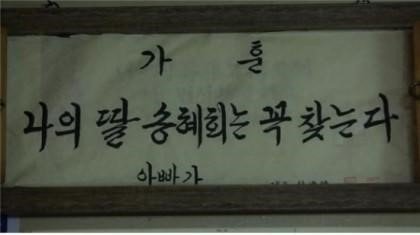 가 훈
나의 딸 송혜희는 꼭 찾는다
아빠가